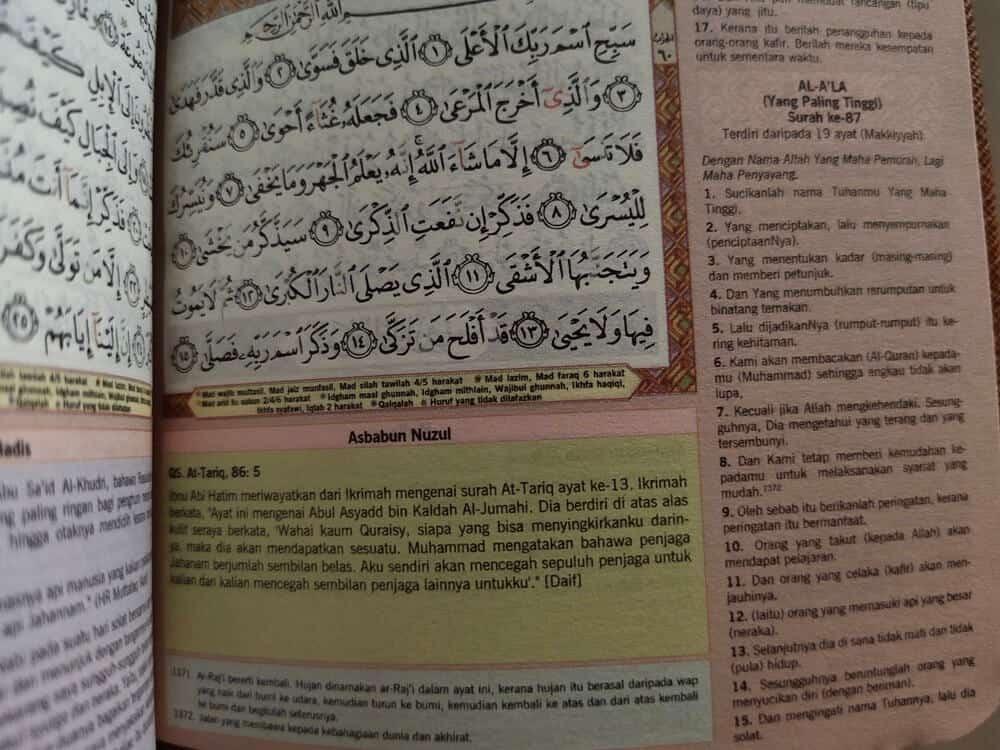 كَيْفَ
الْإِبِلِ
وَإِلَى الْجِبَالِ كَيْفَ
فَذَكِّرْ إِنَّمَا أَنتَ
إِلَّا مَن تَوَلَّىٰ وَكَفَرَ
إِنَّ إِلَيْنَا إِيَابَهُمْ ٢٥
Sa'id Al-Khudri, bahawa
paling ringan bagi
hingga otaknya mendidih
api manusia yang
api Jahannam." (HR
pada suatu hari solat
dan menunjuk dengan
بِسْمِ اللَّهِ الرَّحْمَٰنِ الرَّحِيمِ
سَبِّحِ اسْمَ رَبِّكَ الْأَعْلَى ١ الَّذِي خَلَقَ فَسَوَّىٰ ٢ وَالَّذِي قَدَّرَ فَهَدَىٰ
٣ وَالَّذِي أَخْرَجَ الْمَرْعَىٰ ٤ فَجَعَلَهُ غُثَاءً أَحْوَىٰ ٥ سَنُقْرِئُكَ
فَلَا تَنسَىٰ ٦ إِلَّا مَا شَاءَ اللَّهُ ۚ إِنَّهُ يَعْلَمُ الْجَهْرَ وَمَا يَخْفَىٰ ٧ وَنُيَسِّرُكَ
لِلْيُسْرَىٰ ٨ فَذَكِّرْ إِن نَّفَعَتِ الذِّكْرَىٰ ٩ سَيَذَّكَّرُ مَن يَخْشَىٰ ١٠
وَيَتَجَنَّبُهَا الْأَشْقَى ١١ الَّذِي يَصْلَى النَّارَ الْكُبْرَىٰ ١٢ ثُمَّ لَا يَمُوتُ
فِيهَا وَلَا يَحْيَىٰ ١٣ قَدْ أَفْلَحَ مَن تَزَكَّىٰ ١٤ وَذَكَرَ اسْمَ رَبِّهِ فَصَلَّىٰ ١٥
الحزب
٦٠
Mad wajib muttasil, Mad jaiz munfasil, Mad silah tawilah 4/5 harakat Mad lazim, Mad faraq 6 harakat
Mad arid lis sukun 2/4/6 harakat Idgham maal ghunnah, Idgham mithlain, Wajibul ghunnah, Ikhfa haqiqi,
Ikhfa syafawi, Iqlab 2 harakat Qalqalah Huruf yang tidak dilafazkan
Asbabun Nuzul
QS. At-Tariq, 86: 5
Ibnu Abi Hatim meriwayatkan dari Ikrimah mengenai surah At-Tariq ayat ke-13. Ikrimah
berkata, "Ayat ini mengenai Abul Asyadd bin Kaldah Al-Jumahi. Dia berdiri di atas alas
kulit seraya berkata, 'Wahai kaum Quraisy, siapa yang bisa menyingkirkanku darin-
ya, maka dia akan mendapatkan sesuatu. Muhammad mengatakan bahawa penjaga
Jahanam berjumlah sembilan belas. Aku sendiri akan mencegah sepuluh penjaga untuk
kalian dan kalian mencegah sembilan penjaga lainnya untukku'." [Daif]
1371. Ar-Raj'i bererti kembali. Hujan dinamakan ar-Raj'i dalam ayat ini, kerana hujan itu berasal daripada wap
yang naik dari bumi ke udara, kemudian turun ke bumi, kemudian kembali ke atas dan dari atas kembali
ke bumi dan begitulah seterusnya.
1372. Jalan yang membawa kepada kebahagiaan dunia dan akhirat.
membuat rancangan (tipu
daya) yang jitu.
17. Kerana itu berilah penangguhan kepada
orang-orang kafir. Berilah mereka kesempatan
untuk sementara waktu.
AL-A'LA
(Yang Paling Tinggi)
Surah ke-87
Terdiri daripada 19 ayat (Makkiyyah)
Dengan Nama Allah Yang Maha Pemurah, Lagi
Maha Penyayang.
1. Sucikanlah nama Tuhanmu Yang Maha
Tinggi,
2. Yang menciptakan, lalu menyempurnakan
(penciptaanNya).
3. Yang menentukan kadar (masing-masing)
dan memberi petunjuk.
4. Dan Yang menumbuhkan rerumputan untuk
binatang ternakan.
5. Lalu dijadikanNya (rumput-rumput) itu ke-
ring kehitaman.
6. Kami akan membacakan (Al-Quran) kepada-
mu (Muhammad) sehingga engkau tidak akan
lupa,
7. Kecuali jika Allah mengkehendaki. Sesung-
guhnya, Dia mengetahui yang terang dan yang
tersembunyi.
8. Dan Kami tetap memberi kemudahan ke-
padamu untuk melaksanakan syariat yang
mudah.1372
9. Oleh sebab itu berikanlah peringatan, kerana
peringatan itu bermanfaat.
10. Orang yang takut (kepada Allah) akan
mendapat pelajaran.
11. Dan orang yang celaka (kafir) akan men-
jauhinya.
12. (Iaitu) orang yang memasuki api yang besar
(neraka).
13. Selanjutnya dia di sana tidak mati dan tidak
(pula) hidup.
14. Sesungguhnya beruntunglah orang yang
menyucikan diri (dengan beriman).
15. Dan mengingati nama Tuhannya, lalu dia
solat.